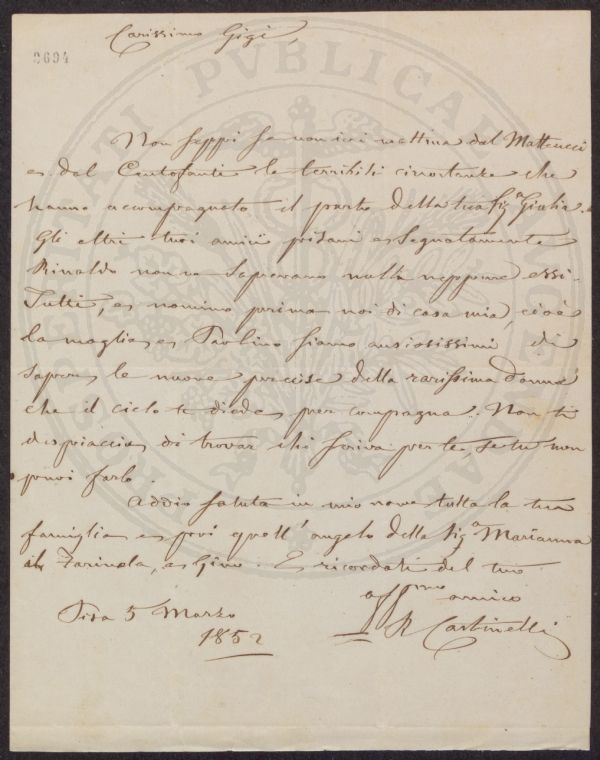 Carissimo Gigi
2694
Non seppi se non ieri mattina dal Matteucci
e dal Centofanti le terribili circostanze che
hanno accompagnato il parto della tua Sig.a Giulia.
Gli altri tuoi amici pisani e segnatamente
Rinaldo non ne sapevano nulla neppure essi.
Tutti, e nomino prima noi di casa mia, cioè
la moglie e Paolino siamo ansiosissimi di
sapere le nuove precise della rarissima donna
che il cielo te diede per compagna. Non ti
dispiaccia di trovar chi scriva per te, se tu non
puoi farlo.
Addio saluta in mio nome tutta la tua
famiglia e poi quell'angelo della Sig.a Marianna
Farinola, e Gino. E ricordati del tuo
aff.mo amico
Pisa 5 Marzo
1852